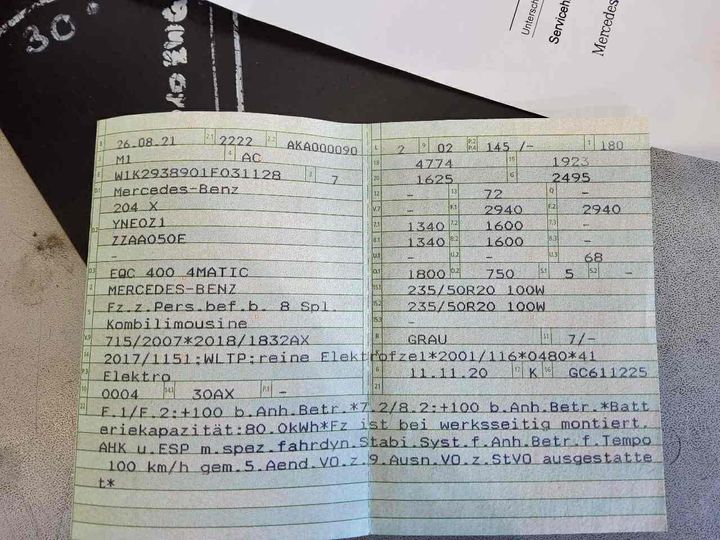 30.
Unterschr
Serviceh
Mercedes
B 26.08.21 2.1 2222 2.2 AKA000090
J M1 4 AC
E W1K2938901F031128 3 7
D.1 Mercedes-Benz
204 X
D.2 YNEOZ1
ZZAA050E
-
D.3 EQC 400 4MATIC
2 MERCEDES-BENZ
5 Fz.z.Pers.bef.b. 8 Spl.
Kombilimousine
V.9 715/2007*2018/1832AX
14 2017/1151;WLTP;reine Elektrofzel*2001/116*0480*41
P.3 Elektro
10 0004 14.1 30AX P.1 -
L 2 9 02 P.2 P.4 145 /- T 180
18 4774 19 1923
20 1625 G 2495
12 - 13 72 Q -
V.7 - F.1 2940 F.2 2940
7.1 1340 7.2 1600 7.3 -
8.1 1340 8.2 1600 8.3 -
U.1 - U.2 - U.3 68
O.1 1800 O.2 750 S.1 5 S.2 -
15.1 235/50R20 100W
15.2 235/50R20 100W
15.3 -
R GRAU 11 7/-
K
6 11.11.20 17 K 16 GC611225
21
22 F.1/F.2:+100 b.Anh.Betr.*7.2/8.2:+100 b.Anh.Betr.*Batt
eriekapazität:80.0kWh*Fz ist bei werksseitig montiert.
AHK u.ESP m.spez.fahrdyn.Stabi.Syst.f.Anh.Betr.f.Tempo
100 km/h gem.5.Aend.VO.z.9.Ausn.VO.z.StVO ausgestatte
t*